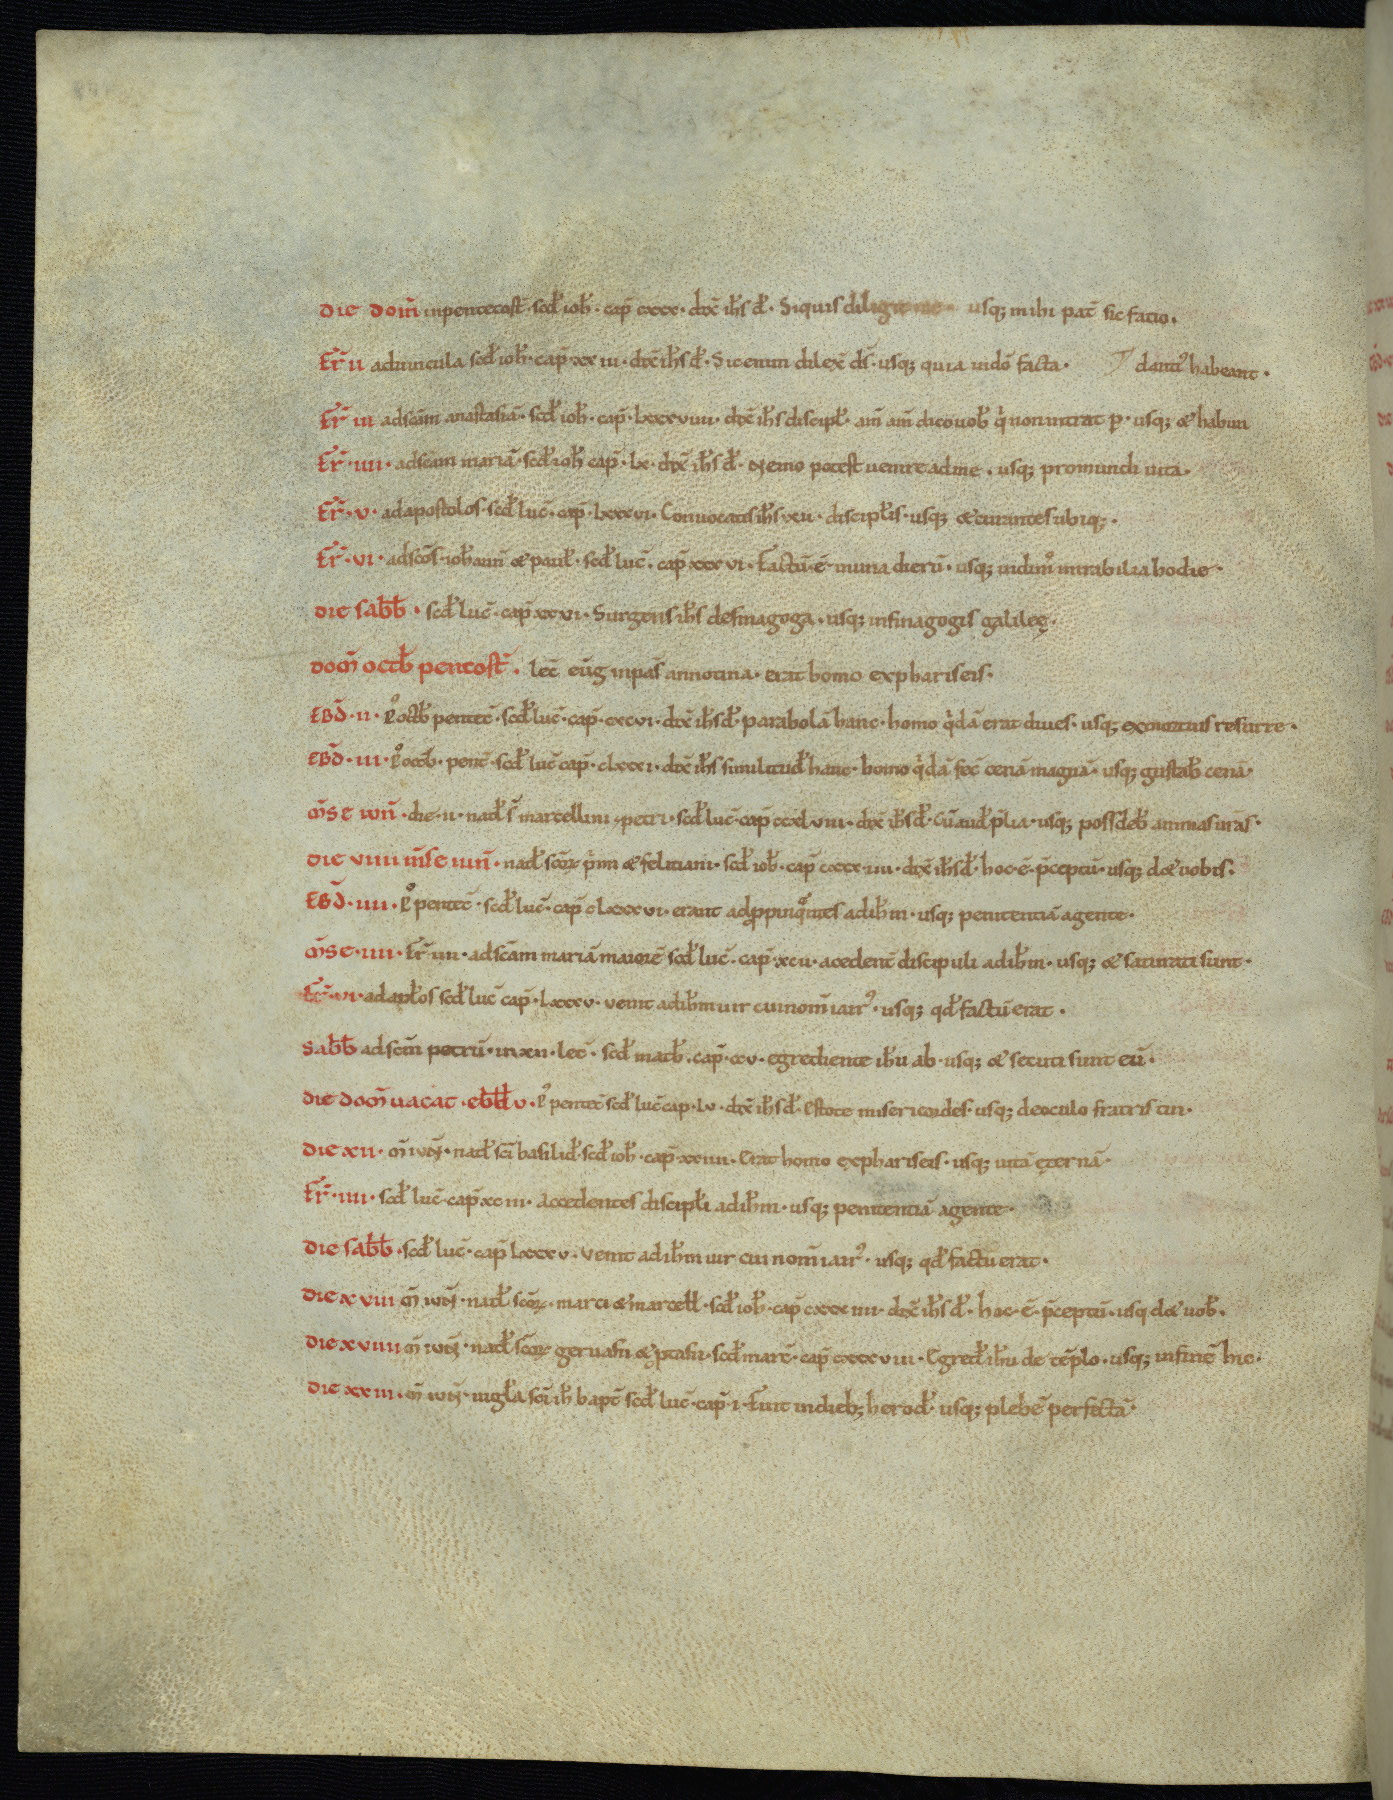 die dom̄ inpentecost̄ · scd̄ ioh̄ · cap̄ cxxx · dix̄ ih̄s d̄ · Siquis diligit me · usq; mihi pat̄ sic facio ·
Fr̄ · ii aduincula scd̄ ioh̄ · cap̄ xxiii · dix̄ ih̄s d̄ · Sic enim dilex̄ d̄s · usq; quia indō facta · dant᷒ habeant ·
Fr̄ · iii adscām anastasiā · scd̄ ioh̄ · cap̄ · lxxxviiii · dix̄ ih̄s discipl̄ · am̄ am̄ dico uob̄ q̄ non intrat p̄ · usq; & habun
Fr̄ · iiii · adscam mariā · scd̄ ioh̄ cap̄ · lx · dix̄ ih̄s d̄ · Nemo potest uenire adme · usq; promundi uita ·
Fr̄ · v · adapostolos · scd̄ luc̄ · cap̄ · lxxxvi · Conuocatis ih̄s xii · discipl̄is · usq; & curantes ubiq; ·
Fr̄ · vi · adscōs · ioh̄ann̄ & paul̄ · scd̄ luc̄ · cap̄ xxxvi · Factū · ē · inuna dierū · usq; uidim᷒ mirabilia hodie ·
die sabb̄ · scd̄ luc̄ · cap̄ xxvi · Surgens ih̄s desinagoga · usq; insinagogis galileę ·
dom̄ octb̄ pentost̄ · lec̄ eūg inpas̄ annotina · erat homo exphariseis ·
EBD̄ · ii · p᷒ octb̄ pentec̄ · scd̄ luc̄ · cap̄ · cxcvi · dix̄ ih̄s d̄ · parabolā hanc · homo q̄dā erat diues · usq; exmortuis resurre ·
EBD̄ · iii · p᷒ octb̄ · pent̄ · scd̄ luc̄ cap̄ · clxxxi · dix̄ ih̄s similitud̄ hanc · homo q̄dā fec̄ cenā magnā · usq; gustab̄ cenā ·
m̄se iun̄ · die · ii · nat̄ s̄ marcellini & petri · scd̄ luc̄ · cap̄ ccxlviii · dix̄ ih̄s d̄ · Cū aud̄ p̄lia · usq; possideb̄ animas ur̄as ·
die viiii m̄se iun̄ · nat̄ scōr̄ p̄mi & feliciani · scd̄ ioh̄ · cap̄ cxxxiiii · dix̄ ih̄s d̄ · hoc · ē · p̄ceptū · usq; d& uobis ·
EBD̄ · iiii · p᷒ pentec̄ · scd̄ luc̄ · cap̄ clxxxvi · erant adp̄pinq̄ntes adih̄m · usq; penitentiā agente ·
m̄se · iiii · Fr̄ · iiii · adscām mariā maiorē scd̄ luc̄ · cap̄ · xcii · acedent̄ discipuli adih̄m · usq; & saturati sunt ·
Fr̄ · vi · adapl̄os scd̄ luc̄ cap̄ · lxxxv · uenit adih̄m uir cui nom̄ iair᷒ · usq; qd̄ factū erat ·
Sabb̄ adscm̄ petrū · in xii · lec̄ · scd̄ math̄ · cap̄ · ccv · egrediente ih̄u ab · usq; & secuti sunt eū ·
die dom̄ uacat · ebd̄ v · p᷒ pentec̄ scd̄ luc̄ cap · lv · dix̄ ih̄s d̄ · Estote misericordes · usq; deoculo fratris tui ·
die xii · m̄ iun̄ · nat̄ sc̄i basilid̄ · scd̄ ioh̄ · cap̄ · xxiiii · Erat homo ex pharisęis · usq; uitā ęternā ·
Fr̄ · iiii · scd̄ luc̄ · cap̄ xciii · Accedentes discipl̄i adih̄m · usq; penitentiā agente ·
die sabb̄ · scd̄ luc̄ · cap̄ lxxxv · Venit adih̄m uir cui nom̄ iair᷒ · usq; qd̄ factū erat ·
die xviii m̄ iun̄ · nat̄ scōr̄ · marci & marcell̄ · scd̄ ioh̄ · cap̄ cxxxiiii · dix̄ ih̄s d̄ · hoc · ē · p̄ceptū · usq d& uob̄ ·
die xviiii m̄ iun̄ · nat̄ scōr̄ geruasii & p̄tasii · scd̄ marc̄ · cap̄ cxxxviii · Egred̄ ih̄u de tēplo · usq; infinē hic ·
die xxiii · m̄ iun̄ · uigl̄a sc̄i ih̄ bapt̄ scd̄ luc̄ · cap̄ · i · Fuit indieb; herod̄ · usq; plebē perfectā ·